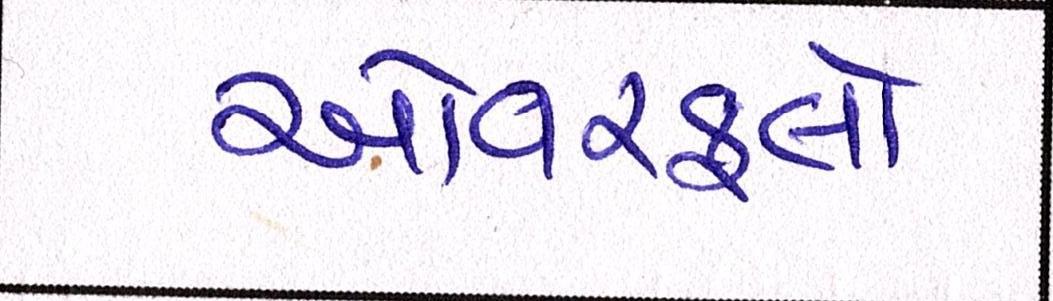 ઓવરફલો